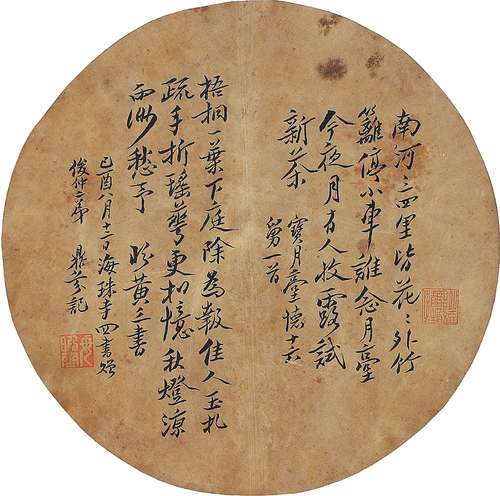 南河里皆花〻外竹
籬停小車誰念月臺
今夜月有人收露試
新茶
寶月臺懷十六
舅一首
梧桐一葉下庭除為報佳人玉札
疏手折瑤華更相憶秋燈涼
雨渺愁予 盼黃三書
己酉八月十二日海珠寺四書贈
俊仲二弟 鼎芬記